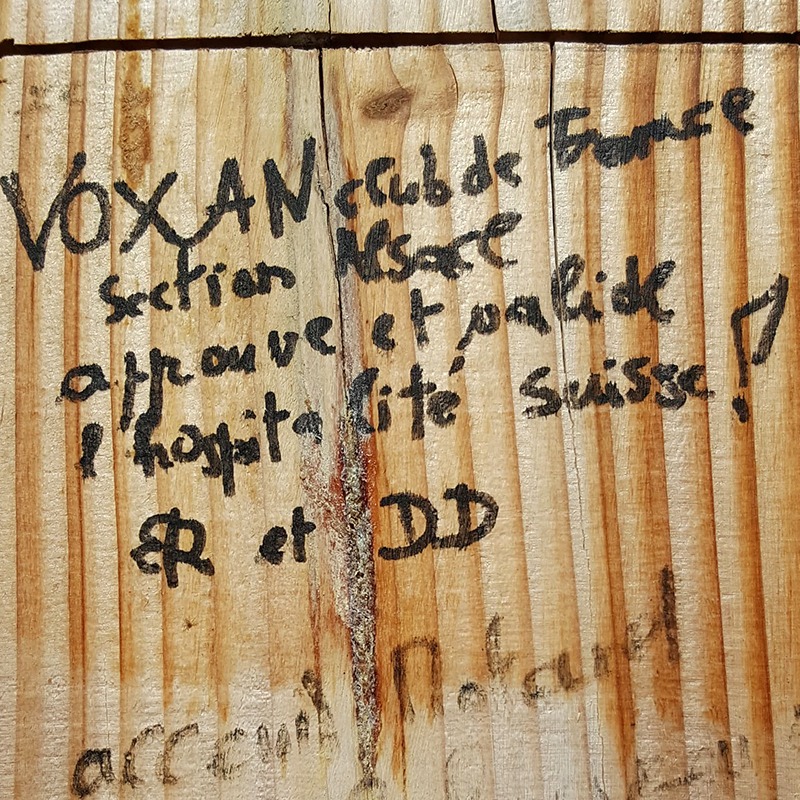 VOXAN club de France
section Alsace
approuve et valide
l'hospitalité suisse !
et DD
acceuil